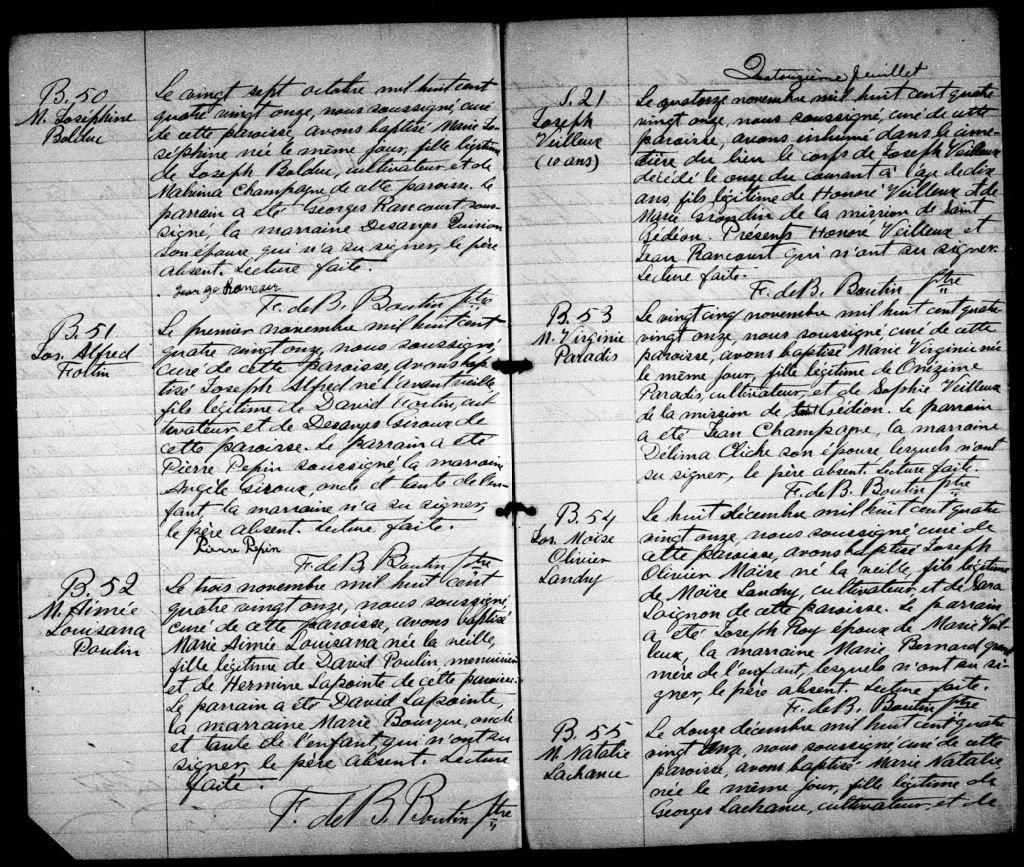 B. 50
M. Joséphine
Bolduc
Le vingt sept octobre mil huit cent
quatre vingt onze, nous soussigné curé
de cette paroisse, avons baptisé Marie Jo-
séphine née le même jour, fille légitime
de Joseph Bolduc, cultivateur et de
Mahina Champagne de cette paroisse. Le
parrain a été Georges Rancourt sous-
signé, la marraine Desanges Quirion
son épouse, qui n'a su signer, le père
absent. Lecture faite.
George Rancour
F. de B. Boutin ptre
B. 51
Jos. Alfred
Fortin
Le premier novembre mil huit cent
quatre vingt onze, nous soussigné,
curé de cette paroisse, avons bap-
tisé Joseph Alfred né l'avant veille,
fils légitime de David Fortin, cul-
tivateur et de Desanges Giroux de
cette paroisse. Le parrain a été
Pierre Pepin soussigné la marraine
Angèle Giroux, oncle et tante de l'en-
fant la marraine n'a su signer,
le père absent. Lecture faite.
Pierre Pepin
F. de B. Boutin ptre
B. 52
M. Aimée
Louisana
Poulin
Le trois novembre mil huit cent
quatre vingt onze, nous soussigné
curé de cette paroisse, avons baptisé
Marie Aimée Louisana née la veille,
fille légitime de David Poulin, menuisier
et de Hermine Lapointe de cette paroisse.
Le parrain a été David Lapointe,
la marraine Marie Bourque, oncle
et tante de l'enfant, qui n'ont su
signer, le père absent. Lecture
faite.
F. de B. Boutin ptre
Quatorzième feuillet
S. 21
Joseph
Veilleux
(10 ans)
Le quatorze novembre mil huit cent quatre
vingt onze, nous soussigné, curé de cette
paroisse, avons inhumé dans le cime-
tière du lieu le corps de Joseph Veilleux
décédé le onze du courant à l'age de dix
ans, fils légitime de Honoré Veilleux et de
Marie Grondin de la mission de Saint
Gédéon. Présents Honoré Veilleux et
Jean Rancourt qui n'ont su signer.
Lecture faite.
F. de B. Boutin ptre
B. 53
M. Virginie
Paradis
Le vingt cinq novembre mil huit cent quatre
vingt onze, nous soussigné, curé de cette
paroisse, avons baptisé Marie Virginie née
le même jour, fille légitime de Onézime
Paradis, cultivateur, et de Sophie Veilleux
de la mission de Gédéon. Le parrain
a été Jean Champagne, la marraine
Délima Cliche son épouse lesquels n'ont
su signer, le père absent. Lecture faite.
F. de B. Boutin ptre
B. 54
Jos. Moïse
Olivier
Landry
Le huit décembre mil huit cent quatre
vingt onze, nous soussigné curé de
cette paroisse, avons baptisé Joseph
Olivier Moïse né la veille, fils légitime
de Moïse Landry, cultivateur, et de Sara
Loignon de cette paroisse. Le parrain
a été Joseph Roy époux de Marie Veil-
leux, la marraine Marie Bernard grand
mère de l'enfant, lesquels n'ont su si-
gner, le père absent. Lecture faite.
F. de B. Boutin ptre
B. 55
M. Natalie
Lachance
Le douze décembre mil huit cent quatre
vingt onze, nous soussigné, curé de cette
paroisse, avons baptisé Marie Natalie
née le même jour, fille légitime de
Georges Lachance, cultivateur, et de